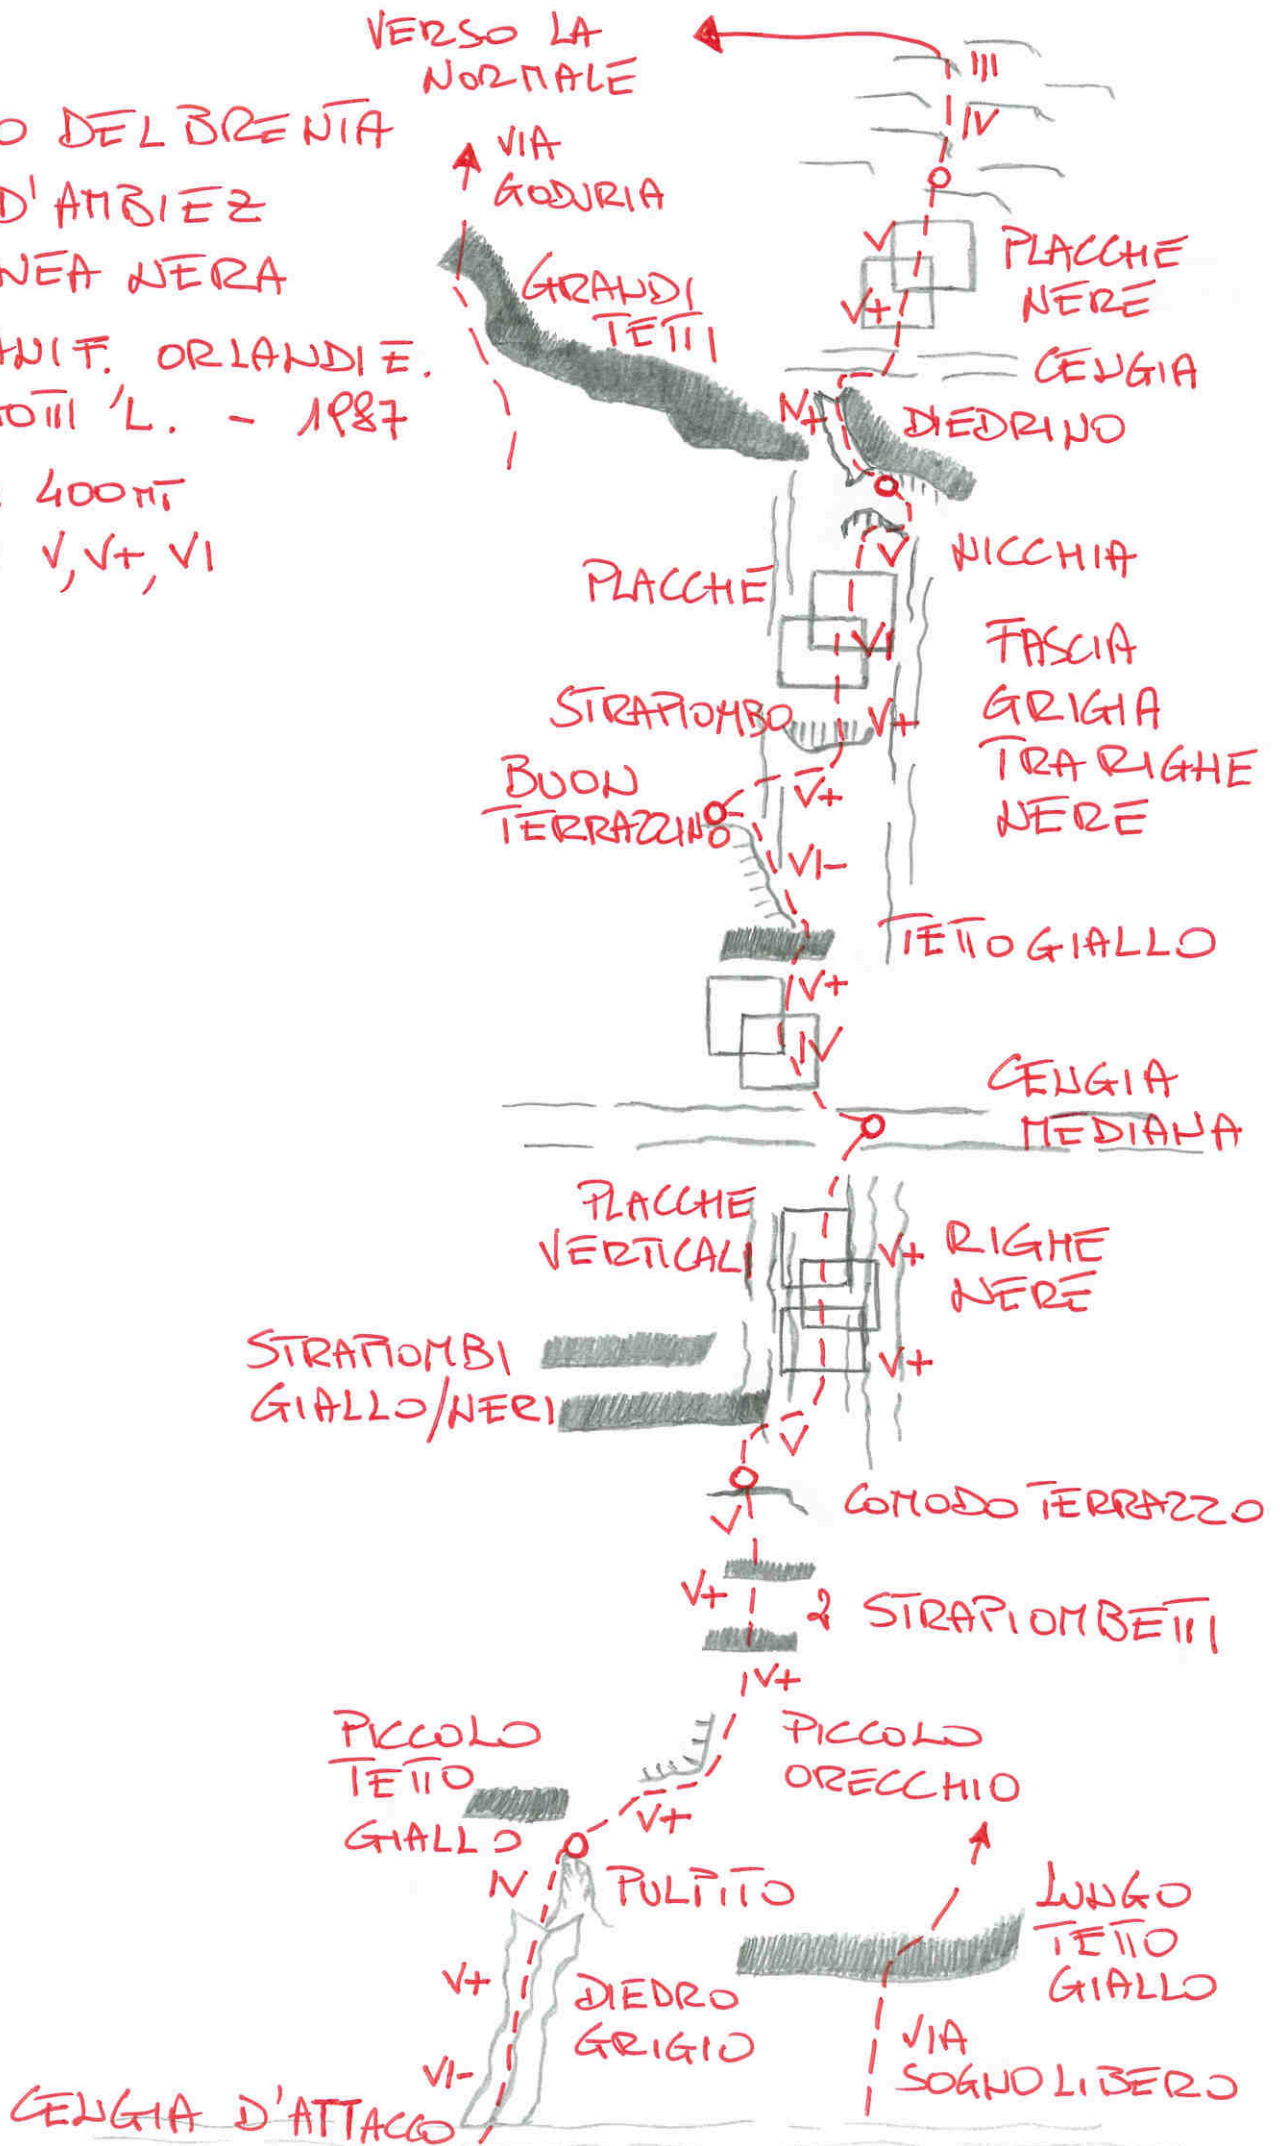 VERSO LA
NORMALE
III
IV
O DEL BRENTA
D'AMBIEZ
NEA NERA
ANI F. ORLANDI E.
OTTI 'L. - 1987
400 MT
V, V+, VI
VIA
GODURIA
GRANDI
TETTI
V
V+
PLACCHE
NERE
CENGIA
IV+
DIEDRINO
V
NICCHIA
PLACCHE
VI
FASCIA
GRIGIA
TRA RIGHE
NERE
STRAPIOMBO
V+
BUON
TERRAZZINO
V+
VI-
TETTO GIALLO
V+
IV
CENGIA
MEDIANA
PLACCHE
VERTICALI
V+
RIGHE
NERE
STRAPIOMBI
GIALLO/NERI
V+
V
COMODO TERRAZZO
V
V+
2 STRAPIOMBETTI
IV+
PICCOLO
TETTO
GIALLO
PICCOLO
ORECCHIO
V+
IV
PULPITO
LUNGO
TETTO
GIALLO
V+
DIEDRO
GRIGIO
VIA
SOGNO LIBERO
VI-
CENGIA D'ATTACCO